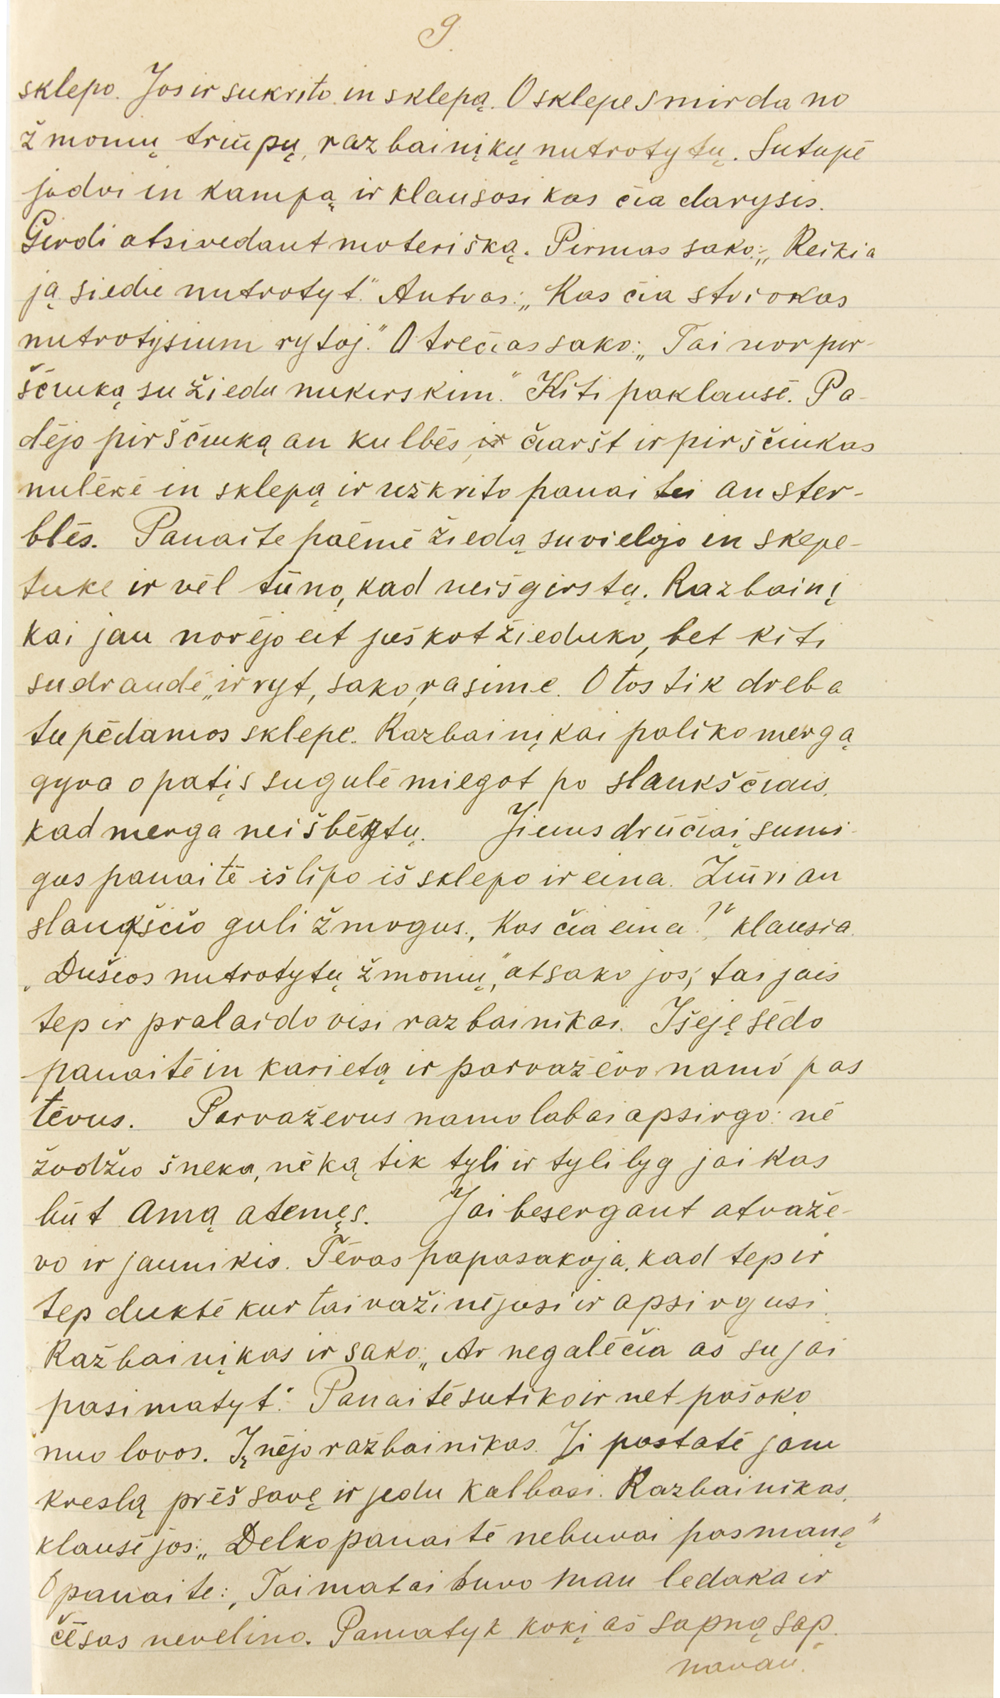 9.
sklepo. Jos ir sukrito in sklepą. O sklepe smirda no
žmonių triūpų, razbainįkų nutrotytų. Sutupė
jodvi in kampą ir klausosi kas čia darysis.
Girdi atsivedant moterišką. Pirmas sako: „Reikia
ją siedie nutrotyt." Antras: „Kas čia striokas
nutrotysium rytoj." O trečias sako: „Tai nor pir-
ščiuką su žiedu nukirskim." Kiti paklausė. Pa-
dėjo pirščiuką an kulbės ir čiaršt ir pirščiukas
nulėkė in sklepą ir užkrito panaitei an ster-
blės. Panaite paėmė žiedą suvielgjo in skepe-
tuke ir vėl tūno, kad neišgirstų. Razbainį
kai jau norėjo eit juškot žieduko, bet kiti
sudraudė „ir ryt, sako, rasime. O tos tik dreba
tupėdamos sklepe. Razbainįkai paliko mergą
gyva o patįs sugulė miegot po slaukščiais,
kad merga neišbėgtų. Jiems drūčiai sumi-
gus panaitė išlipo iš sklepo ir eina. Žiūri an
slaukščio guli žmogus. „Kas čia eina?" klausia.
„Dušios nutrotytų žmonių," atsako jos; tai jais
tep ir pralaido visi razbainikai. Išeję sėdo
panaitė in karietą ir parvažėvo namo pas
tėvus. Parvaževus namo labai apsirgo: nė
žodžio šneka, nėką tik tyli ir tyli lyg jai kas
būt amą atemęs. Jai besergant atvaže-
vo ir jaunikis. Tėvas papasakoja, kad tep ir
tep duktė kur tai važinėjusi ir apsirgusi.
Razbainįkas ir sako: „Ar negalėčia aš su jai
pasimatyt." Panaitė sutiko ir net pašoko
nuo lovos. Įnėjo razbainikas. Ji pastatė jam
kreslą prėš savę ir jedu kalbasi. Razbainikas
klausė jos: „Delko panaitė nebuvai pas manę"
O panaite: „Tai matai buvo man ledaka ir
čėsas nevelino. Pamatyk kokį aš sapną sap-
navau."